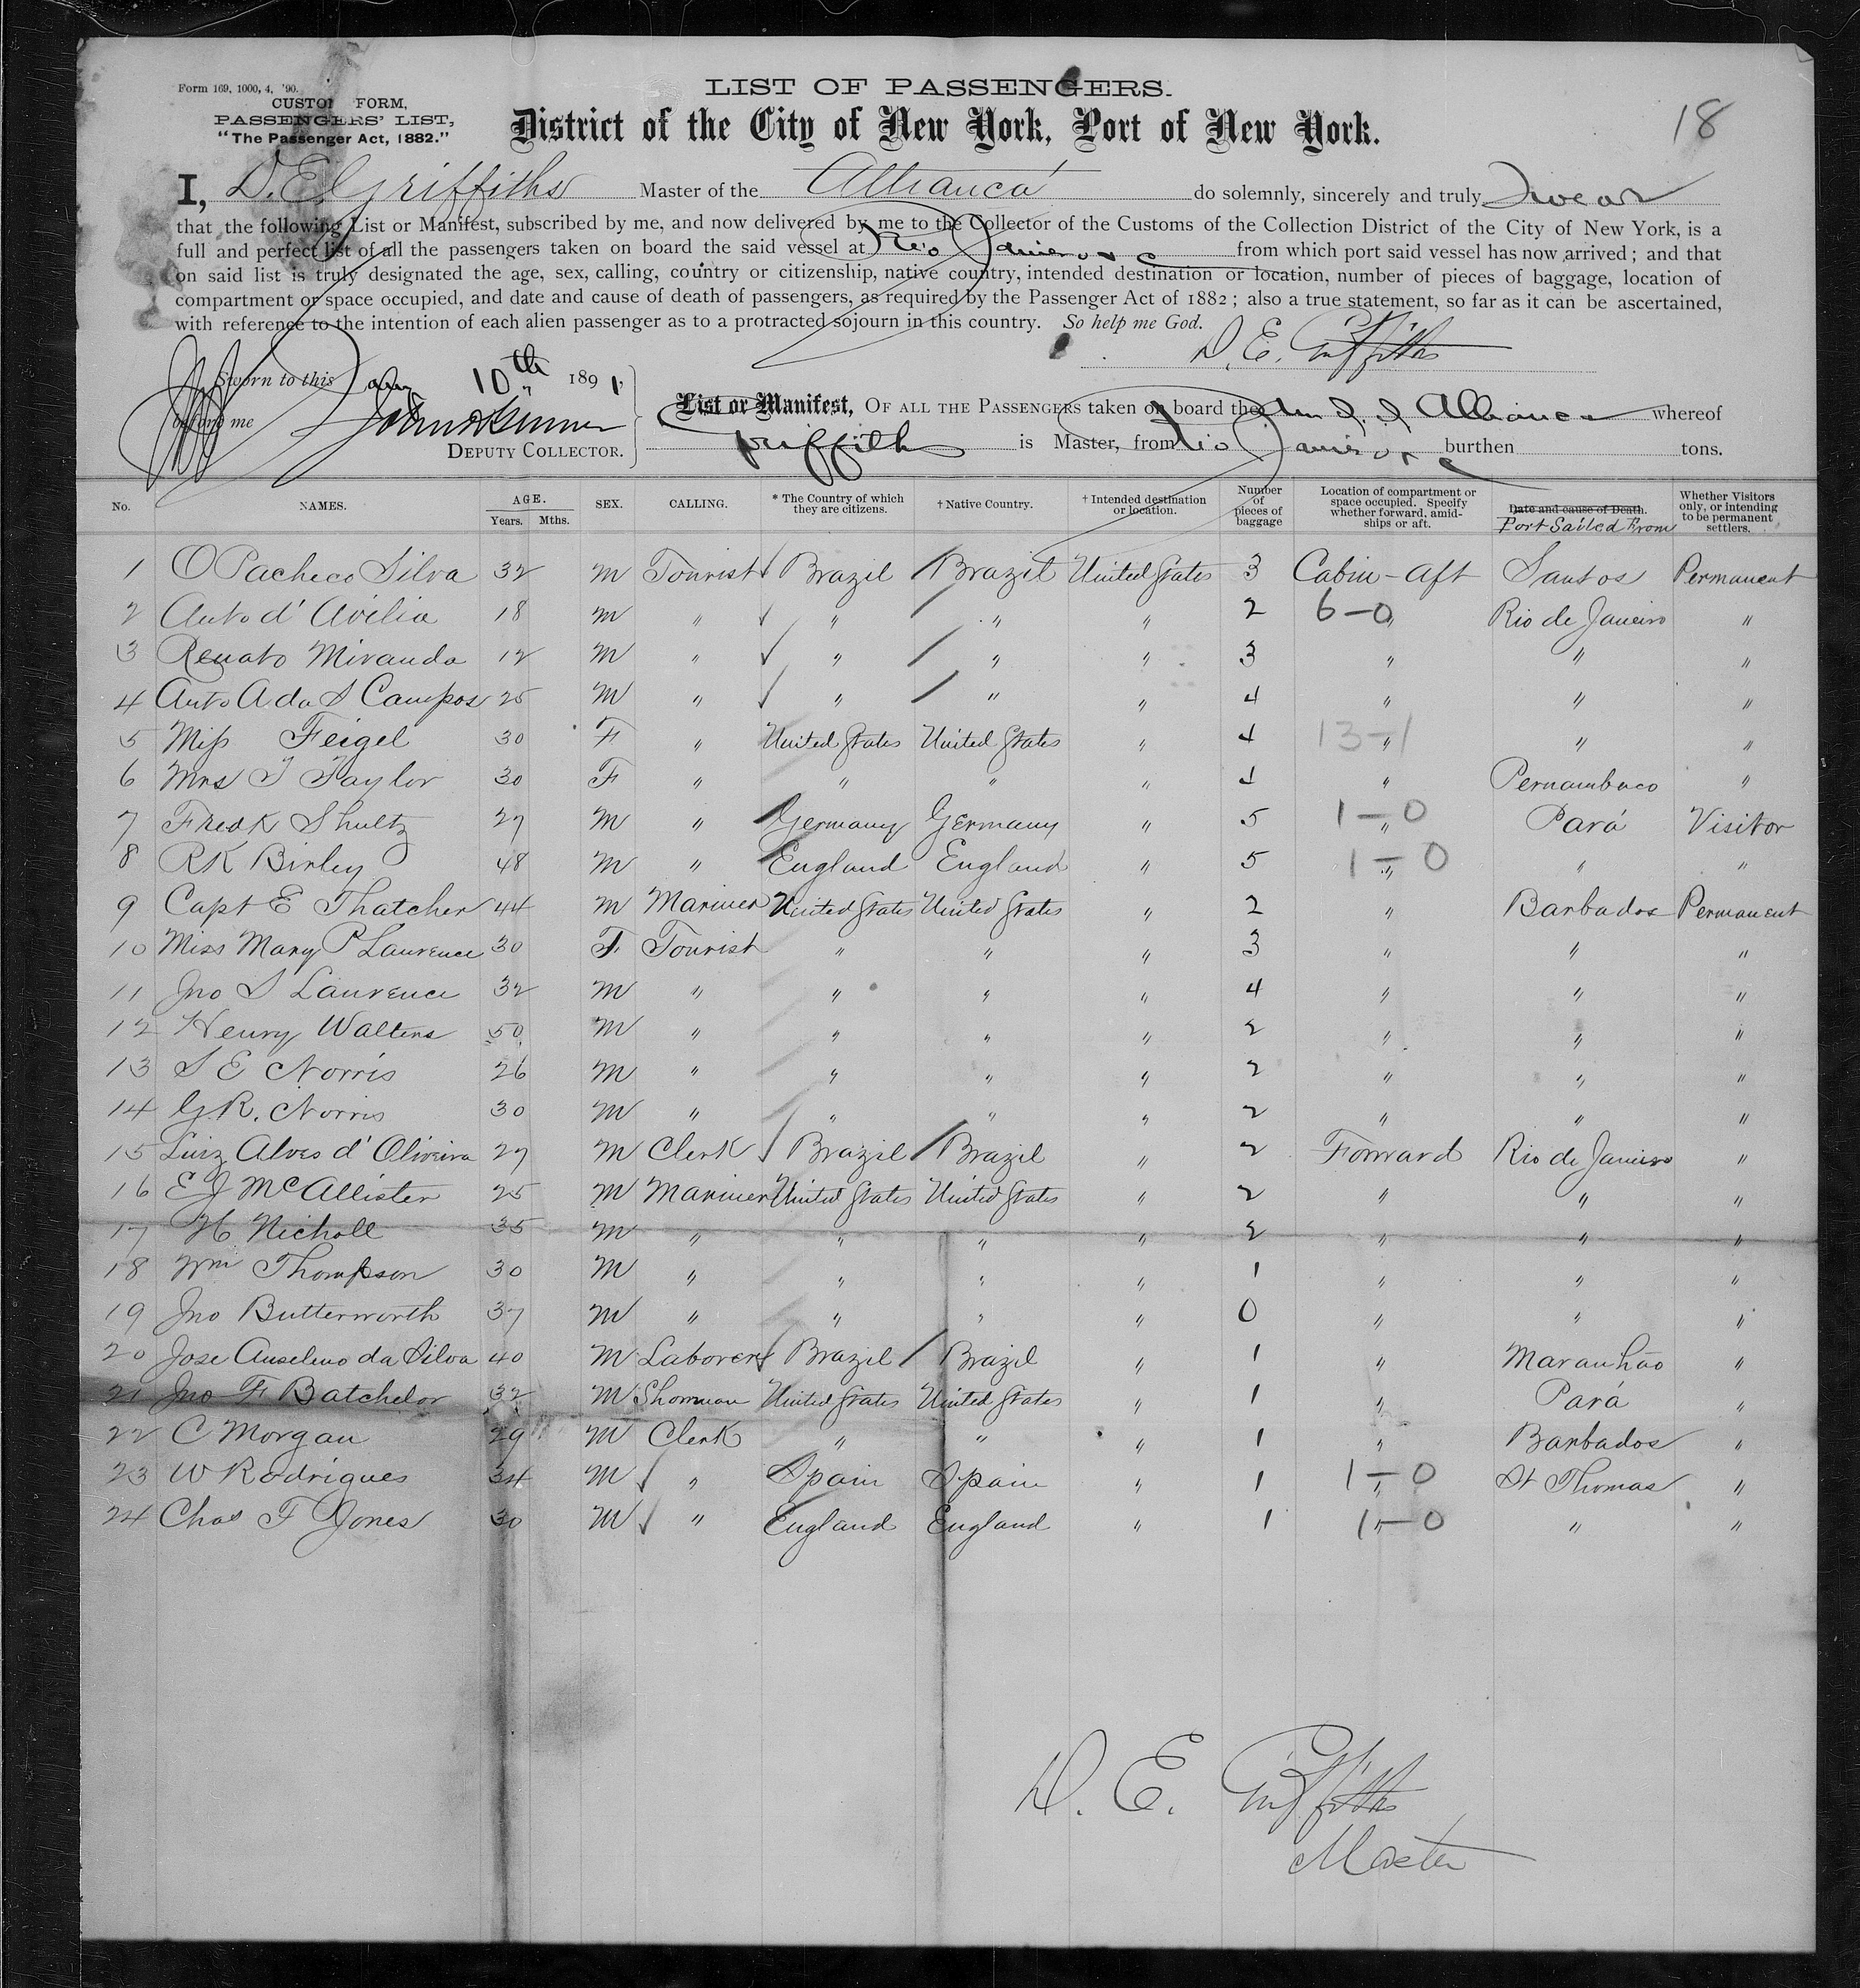 Form 169, 1000, 4, '90.
CUSTOM FORM,
PASSENGERS' LIST,
"The Passenger Act, 1882."
LIST OF PASSENGERS.
District of the City of New York, Port of New York.
18
I, D. E. Griffiths Master of the Allianca do solemnly, sincerely and truly Swear
that the following List or Manifest, subscribed by me, and now delivered by me to the Collector of the Customs of the Collection District of the City of New York, is a
full and perfect list of all the passengers taken on board the said vessel at Rio Janeiro &c from which port said vessel has now arrived; and that
on said list is truly designated the age, sex, calling, country or citizenship, native country, intended destination or location, number of pieces of baggage, location of
compartment or space occupied, and date and cause of death of passengers, as required by the Passenger Act of 1882; also a true statement, so far as it can be ascertained,
with reference to the intention of each alien passenger as to a protracted sojourn in this country. So help me God.
D. E. Griffiths
Sworn to this Jany 10th 1891,
before me
DEPUTY COLLECTOR.
List or Manifest, OF ALL THE PASSENGERS taken on board the Am S. S. Allianca whereof
Griffiths is Master, from Rio Janeiro &c burthen tons.
No. NAMES. AGE. Years. Mths. SEX. CALLING. * The Country of which they are citizens. † Native Country. † Intended destination or location. Number of pieces of baggage Location of compartment or space occupied. Specify whether forward, amidships or aft. Date and cause of Death. Port Sailed From Whether Visitors only, or intending to be permanent settlers.
1 O Pacheco Silva 32 M Tourist Brazil Brazil United States 3 Cabin - Aft Santos Permanent
2 Anto d' Avilia 18 M " " " " 2 6-0 " Rio de Janeiro "
3 Renato Miranda 12 M " " " " 3 " " "
4 Anto A da S Campos 25 M " " " " 4 " " "
5 Miss Feigel 30 F " United States United States " 4 13-1 " " "
6 Mrs T Taylor 30 F " " " " 1 " Pernambuco "
7 Fredk Shultz 27 M " Germany Germany " 5 1-0 " Pará Visitor
8 RK Birley 48 M " England England " 5 1-0 " " "
9 Capt E Thatcher 44 M Mariner United States United States " 2 " Barbados Permanent
10 Miss Mary P Laurence 30 F Tourist " " " 3 " " "
11 Jno S Laurence 32 M " " " " 4 " " "
12 Henry Walters 50 M " " " " 2 " " "
13 S E Norris 26 M " " " " 2 " " "
14 G.R. Norris 30 M " " " " 2 " " "
15 Luiz Alves d' Oliveira 27 M Clerk Brazil Brazil " 2 Forward Rio de Janeiro "
16 E J McAllister 25 M Mariner United States United States " 2 " " "
17 H Nicholl 35 M " " " " 2 " " "
18 Wm Thompson 30 M " " " " 1 " " "
19 Jno Butterworth 37 M " " " " 0 " " "
20 Jose Anselmo da Silva 40 M Laborer Brazil Brazil " 1 " Maranhão "
21 Jno F Batchelor 32 M Showman United States United States " 1 " Pará "
22 C Morgan 29 M Clerk " " " 1 " Barbados "
23 W Rodrigues 34 M " Spain Spain " 1 1-0 " St Thomas "
24 Chas F Jones 30 M " England England " 1 1-0 " " "
D. E. Griffiths
Master